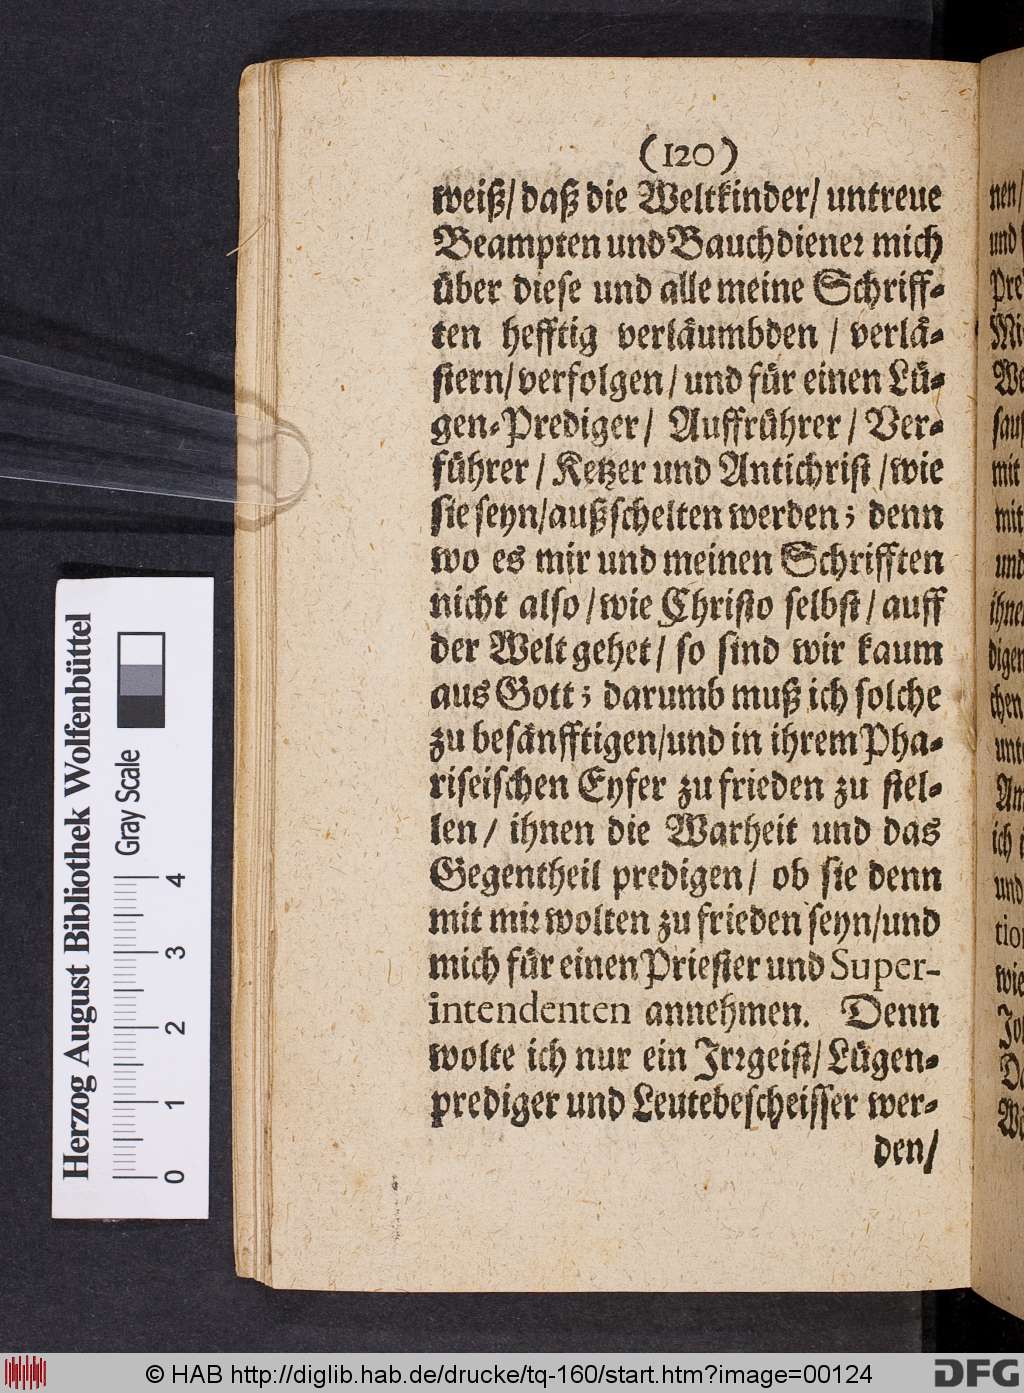 (120)
weiß/ daß die Weltkinder/ untreue
Beampten und Bauchdiener mich
über diese und alle meine Schriff-
ten hefftig verläumbden / verlä-
stern/ verfolgen/ und für einen Lü-
gen-Prediger/ Auffrührer/ Ver-
führer/ Ketzer und Antichrist/ wie
sie seyn/ außschelten werden; denn
wo es mir und meinen Schrifften
nicht also/ wie Christo selbst/ auff
der Welt gehet/ so sind wir kaum
aus Gott; darumb muß ich solche
zu besänfftigen/ und in ihrem Pha-
riseischen Eyfer zu frieden zu stel-
len/ ihnen die Warheit und das
Gegentheil predigen/ ob sie denn
mit mir wolten zu frieden seyn/ und
mich für einen Priester und Super-
intendenten annehmen. Denn
wolte ich nur ein Irrgeist/ Lügen-
prediger und Leutebescheisser wer-
den/
nen/
und
Pre
Mi
We
sauf
mit
mit
und
ihne
digen
chen
unte
Am
ich
und
tio
wie
Joh
Da
We
Herzog August Bibliothek Wolfenbüttel
Gray Scale
0 1 2 3 4
© HAB http://diglib.hab.de/drucke/tq-160/start.htm?image=00124
DFG